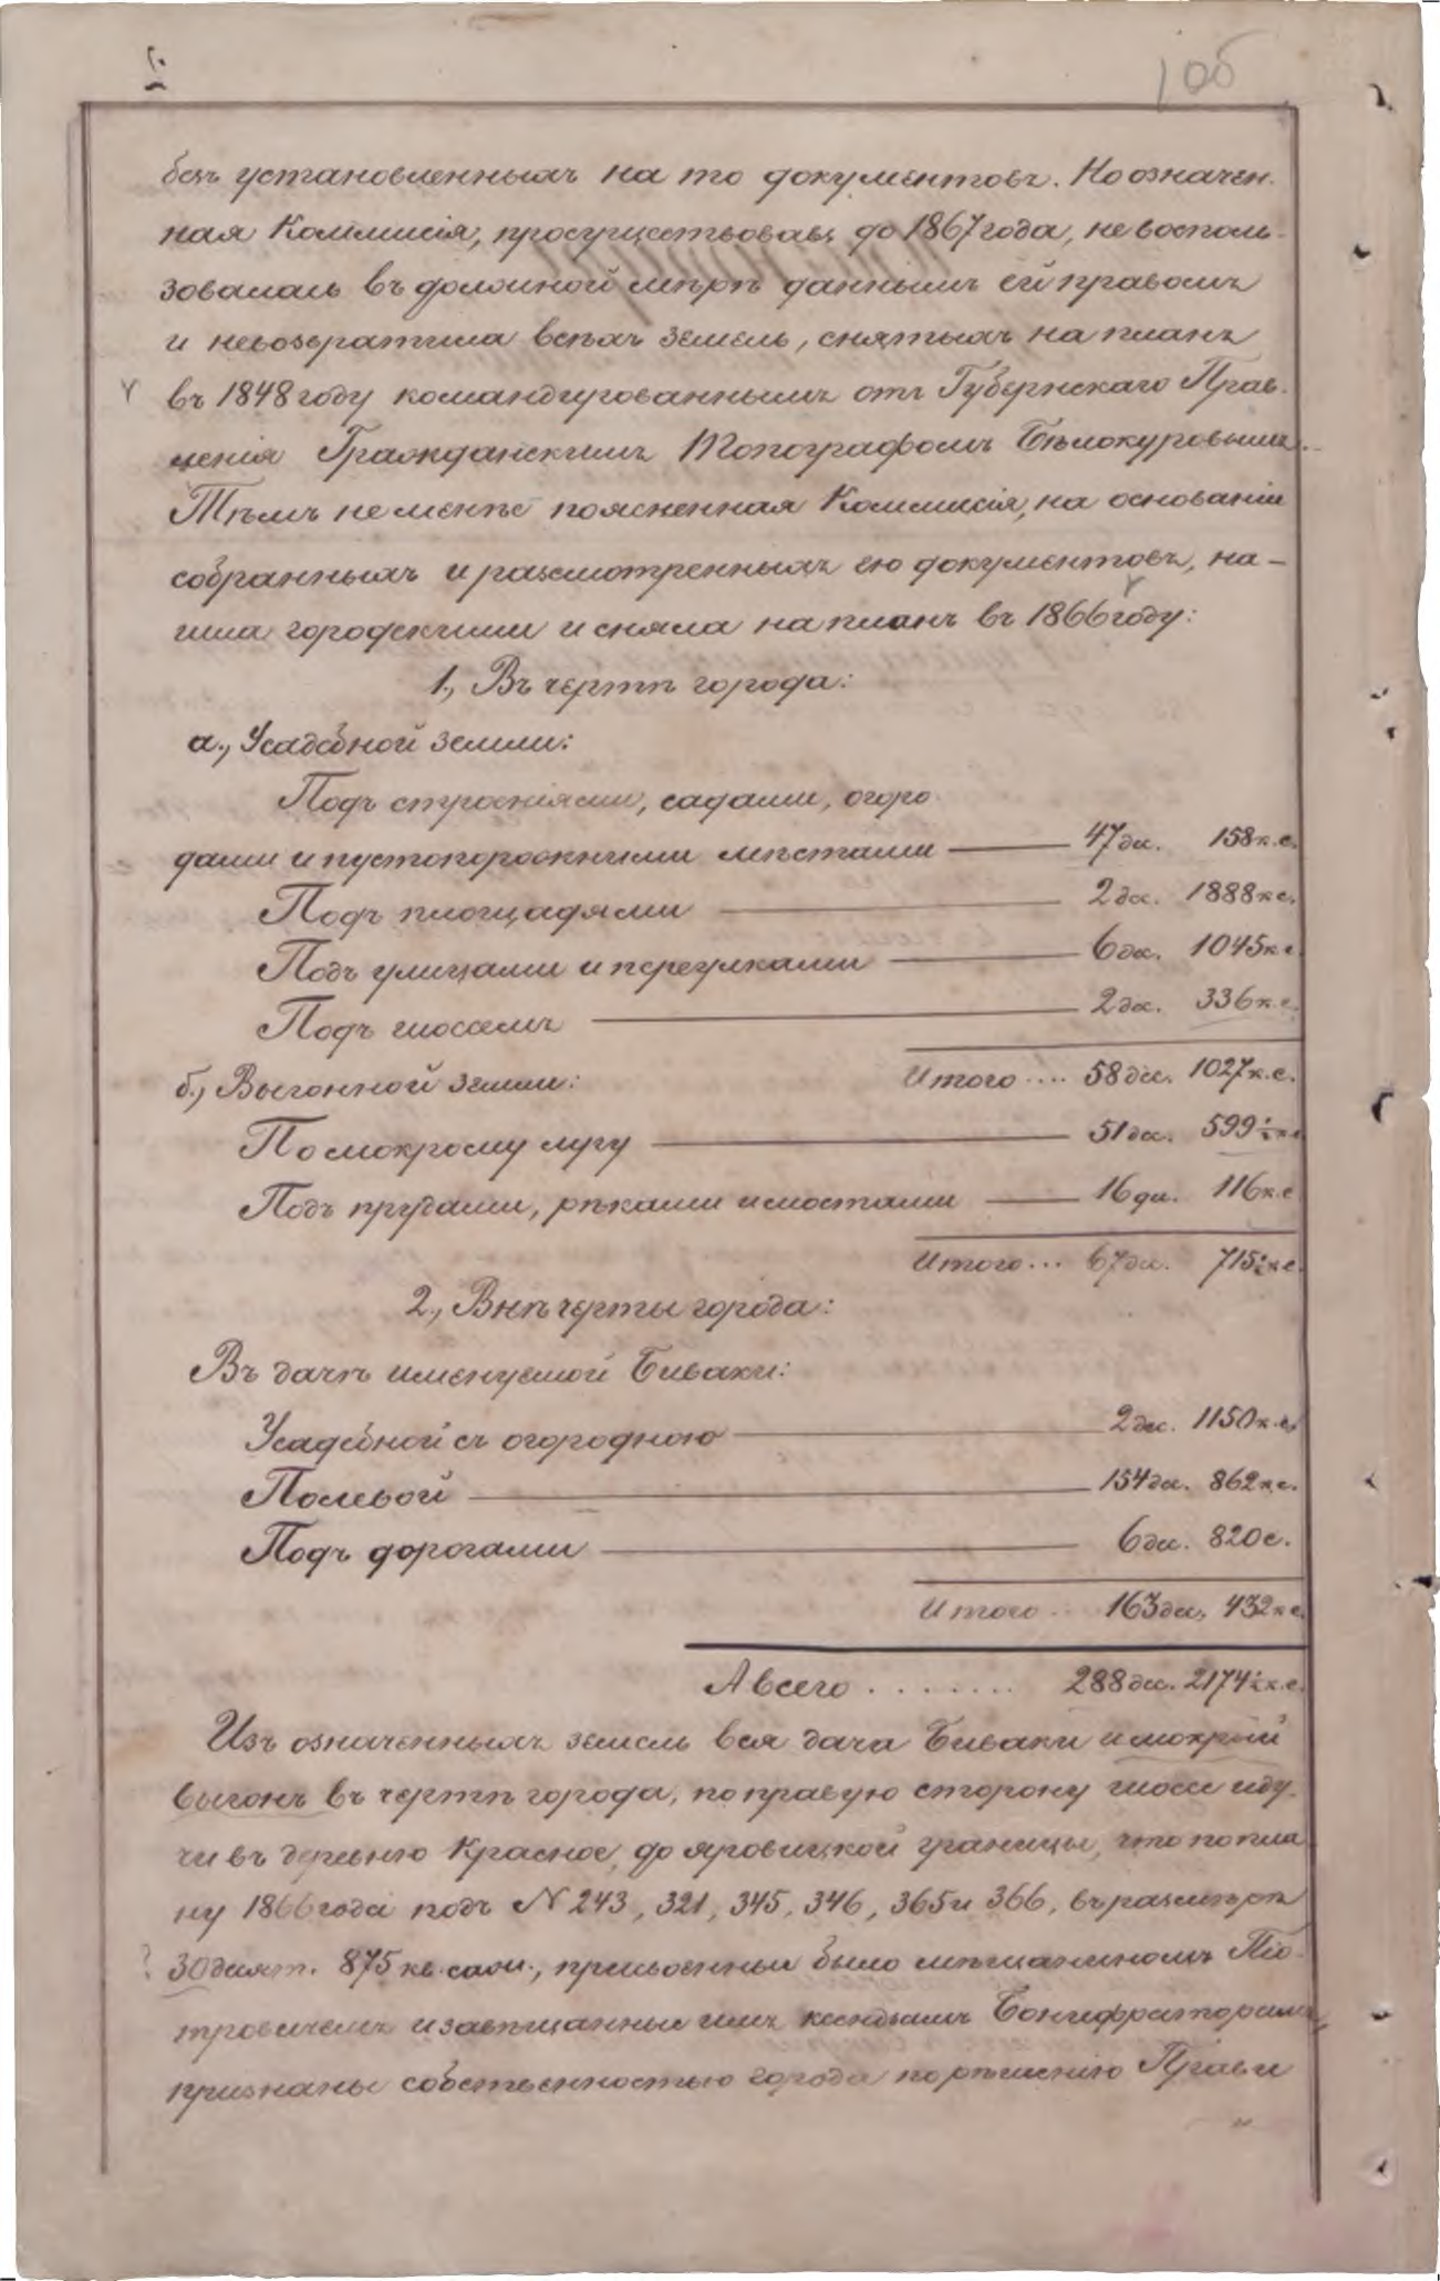 106
безъ установленныхъ на то документовъ. Но означен-
ная Коммисія, просуществовавъ до 1867 года, не восполь-
зовалась въ должной мѣрѣ даннымъ ей правомъ
и невозвратила всѣхъ земель, снятыхъ на планъ
въ 1848 году командированнымъ отъ Губернскаго Прав-
ленія Гражданскимъ Топографомъ Бѣлокуровымъ.
Тѣмъ не менѣе поясненная Коммисія, на основаніи
собранныхъ и разсмотренныхъ ею документовъ, на-
шла городскими и сняла на планъ въ 1866 году:
1., Въ чертѣ города:
а., Усадебной земли:
Подъ строеніями, садами, огоро-
дами и пустопорожними мѣстами — 47 дес. 158 к.с.
Подъ площадями — 2 дес. 1888 к.с.
Подъ улицами и переулками — 6 дес. 1045 к.с.
Подъ шоссемъ — 2 дес. 336 к.с.
Итого .... 58 дес. 1027 к.с.
б., Выгонной земли:
По мокрому лугу — 51 дес. 599½ к.с.
Подъ прудами, рѣками и мостами — 16 дес. 116 к.с.
Итого ... 67 дес. 715½ к.с.
2., Внѣ черты города:
Въ дачѣ именуемой Биваки:
Усадебной съ огородною — 2 дес. 1150 к.с.
Полевой — 154 дес. 862 к.с.
Подъ дорогами — 6 дес. 820 с.
Итого .. 163 дес. 432 к.с.
А всего ........ 288 дес. 2174½ к.с.
Изъ означенныхъ земель вся дача Биваки и мокрый
выгонъ въ чертѣ города, по правую сторону шоссе иду-
чи въ деревню Красное, до яровицкой границы, что по пла
ну 1866 года подъ N 243, 321, 345, 346, 365 и 366, въ размѣрѣ
30 десят. 875 кв. саж., присвоенныи было мѣщаниномъ Піо-
тровичемъ и завѣщанныи имъ ксендзамъ Бонифраторамъ,
признаны собственностью города по рѣшенію Прави